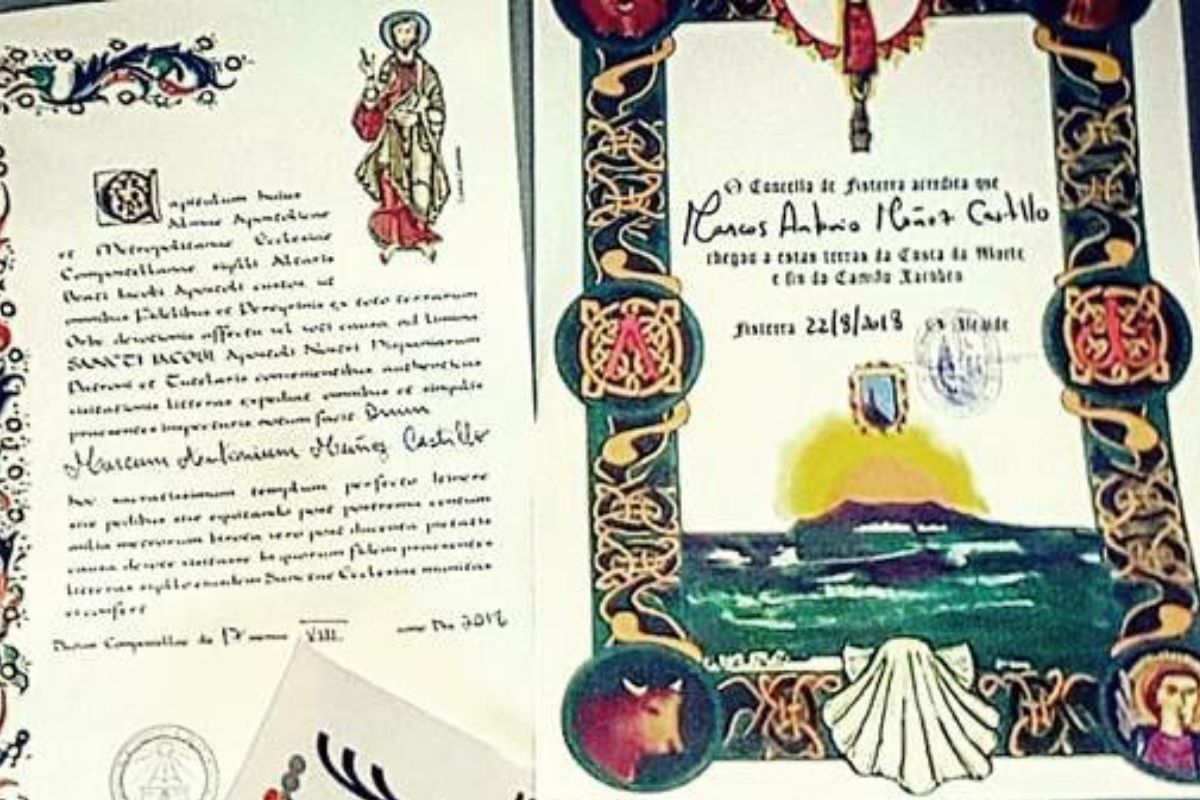 Capitulum huius
Almae Apostolicae
et Metropolitanae Ecclesiae
Compostellanae sigilli Altaris
Beati Iacobi Apostoli custos, ut
omnibus Fidelibus et Peregrinis ex toto terrarum
Orbe, devotionis affectu vel voti causa, ad limina
SANCTI IACOBI, Apostoli Nostri Hispaniarum
Patroni et Tutelaris convenientibus, authenticas
visitationis litteras expediat, omnibus et singulis
praesentes inspecturis, notum facit: Dnum
Marcum Antonium Muñoz Castillo
hoc sacratissimum templum, perfecto itinere
sive pedibus sive equitando post postrema centum
milia metrorum, birota vero post ducenta, pietatis
causa, devote visitasse. In quorum fidem praesentes
litteras, sigillo eiusdem Sanctae Ecclesiae munitas,
ei confero.
Datum Compostellae die 17 mensis VIII anno Dni 2018
O Concello de Fisterra acredita que
Marcos Antonio Muñoz Castillo
chegou a estas terras da Costa da Morte
e fin do Camiño Xacobeo
Fisterra 22/8/2018 O Alcalde